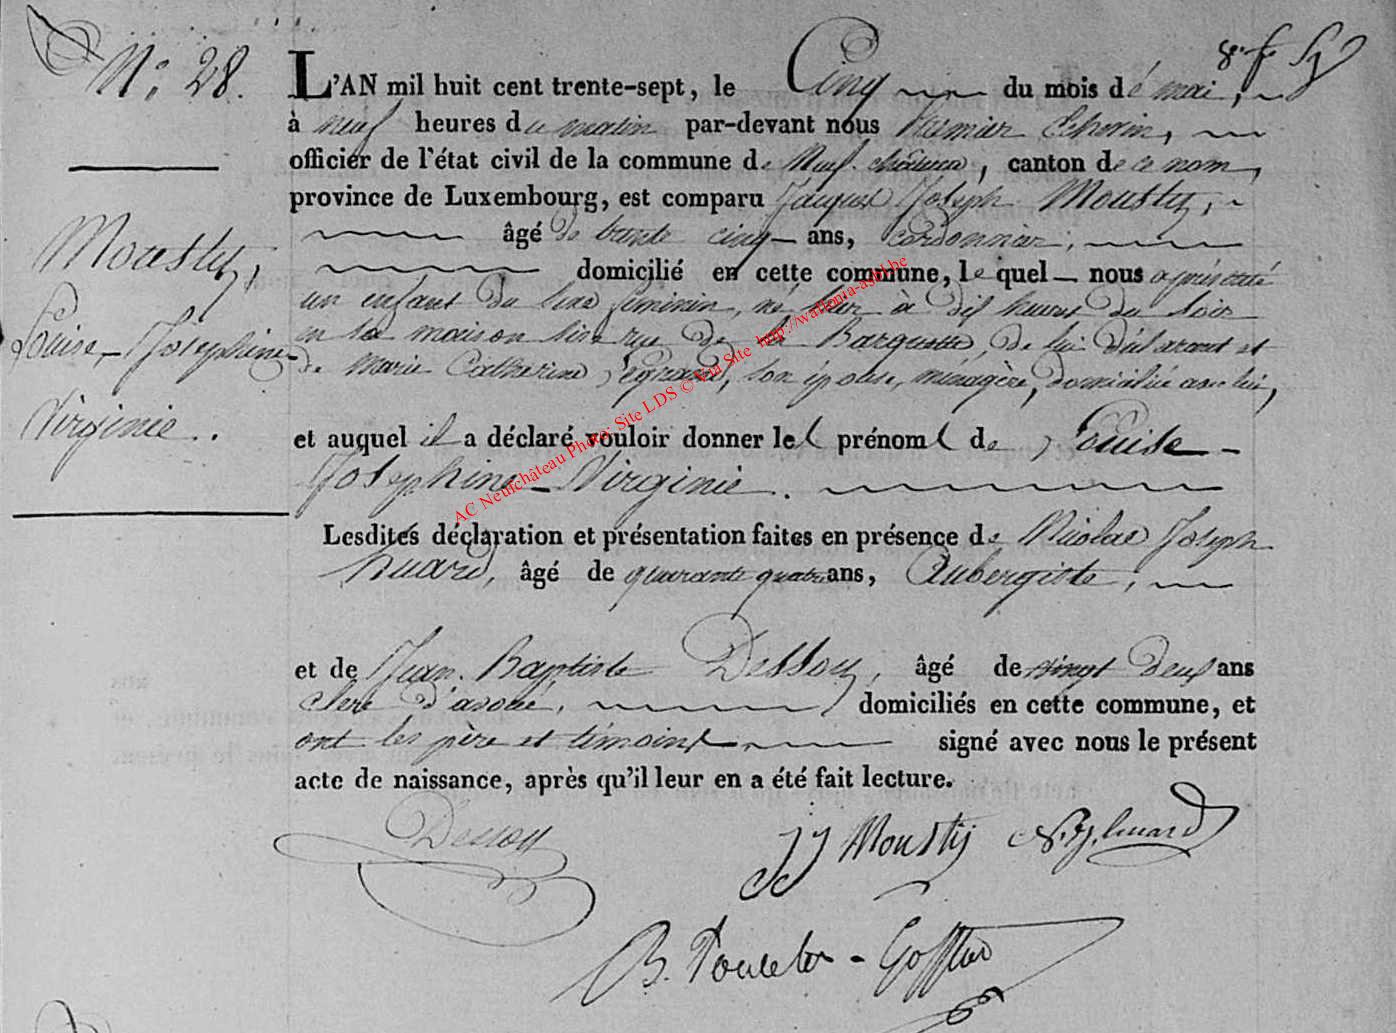 N.° 28.
8.e f.
L'AN mil huit cent trente-sept, le Cinq du mois de mai,
à neuf heures du matin par-devant nous premier Echevin,
officier de l'état civil de la commune de Neuf-château, canton de ce nom,
province de Luxembourg, est comparu Jacques Joseph Mousty,
âgé de trente cinq ans, cordonnier,
domicilié en cette commune, lequel nous a présenté
un enfant du sexe féminin, né hier à dix heures du soir
en sa maison sise rue de la Barquette, de lui déclarant et
de marie Catherine Legrand, son épouse, ménagère, domiciliée avec lui,
et auquel il a déclaré vouloir donner les prénoms de Louise-
Josephine-Virginie.
Lesdites déclaration et présentation faites en présence de Nicolas Joseph
huard, âgé de quarante quatre ans, Aubergiste,
et de Jean-Baptiste Dessoy, âgé de vingt deux ans
clerc d'avoué, domiciliés en cette commune, et
ont les père et témoins signé avec nous le présent
acte de naissance, après qu'il leur en a été fait lecture.
Mousty,
Louise-Josephine-
Virginie.
Dessoy
JJ Mousty
N.J. huard
B. Poncelet-Goffinet
AC Neufchâteau Photo: Site LDS © Via Site http://wallonia-asbl.be